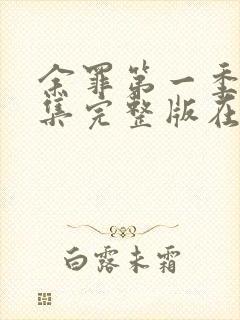 余罪第一季
集完整版在
白露未霜